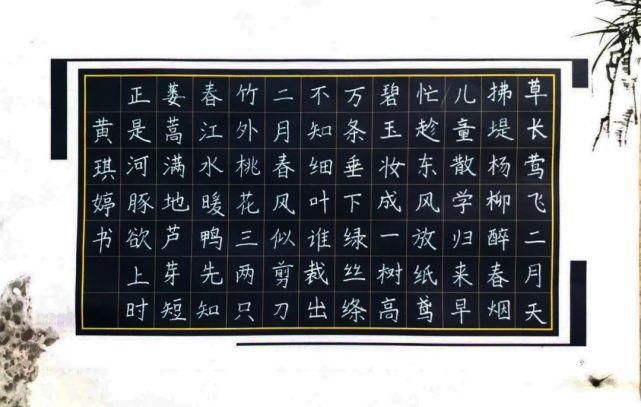 草长莺飞二月天
拂堤杨柳醉春烟
儿童散学归来早
忙趁东风放纸鸢
碧玉妆成一树高
万条垂下绿丝绦
不知细叶谁裁出
二月春风似剪刀
竹外桃花三两只
春江水暖鸭先知
蒌蒿满地芦芽短
正是河豚欲上时
黄琪婷书